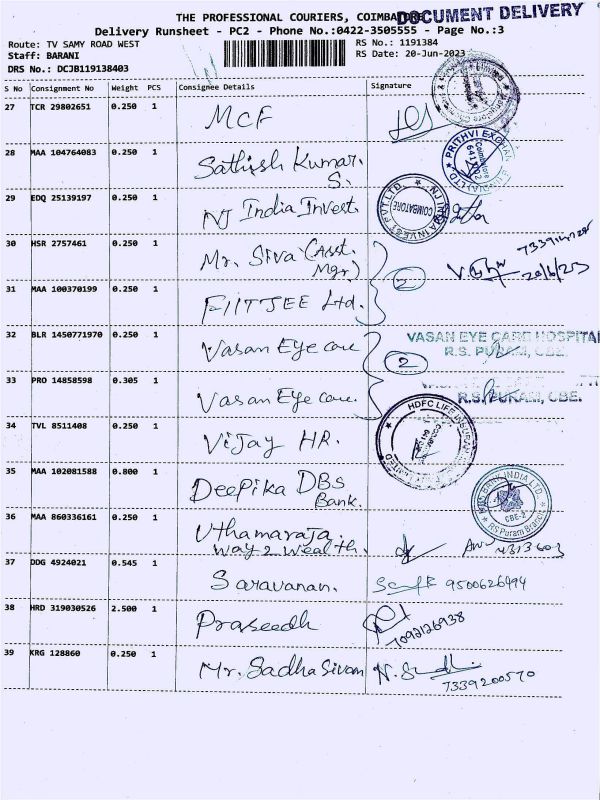 DOCUMENT DELIVERY
THE PROFESSIONAL COURIERS, COIMBATORE
Delivery Runsheet - PC2 - Phone No.:0422-3505555 - Page No.:3
Route: TV SAMY ROAD WEST RS No.: 1191384
Staff: BARANI RS Date: 20-Jun-2023
DRS No.: DCJB119138403
S No Consignment No Weight PCS Consignee Details Signature
27 TCR 29802651 0.250 1 MCF
28 MAA 104764083 0.250 1 Sathish Kumar. S.
PRITHVI EXCHAN
Coimbatore
29 EDQ 25139197 0.250 1 NJ India Invest.
NJ INDIA INVEST PVT. LTD.
COIMBATORE
30 HSR 2757461 0.250 1 Mr. Siva (Asst. Mgr)
20/6/23
2
31 MAA 100370199 0.250 1 FIITJEE Ltd.
32 BLR 1450771970 0.250 1 Vasan Eye care
2
VASAN EYE CARE HOSPITAL
R.S. PURAM, CBE.
33 PRO 14858598 0.305 1 Vasan Eye care.
R.S. PURAM, CBE.
34 TVL 8511408 0.250 1 Vijay HR.
HDFC LIFE INSURANCE
LIMITED
35 MAA 102081588 0.800 1 Deepika DBS Bank.
BANK INDIA LTD.
CBE-2
RS Puram Branch
36 MAA 860336161 0.250 1 Uthamaraja. Way 2 Wealth.
37 DDG 4924021 0.545 1 Saravanan. 9500626494
38 HRD 319030526 2.500 1 Praseedh
7092126938
39 KRG 128860 0.250 1 Mr. Sadha Sivam
7339200570